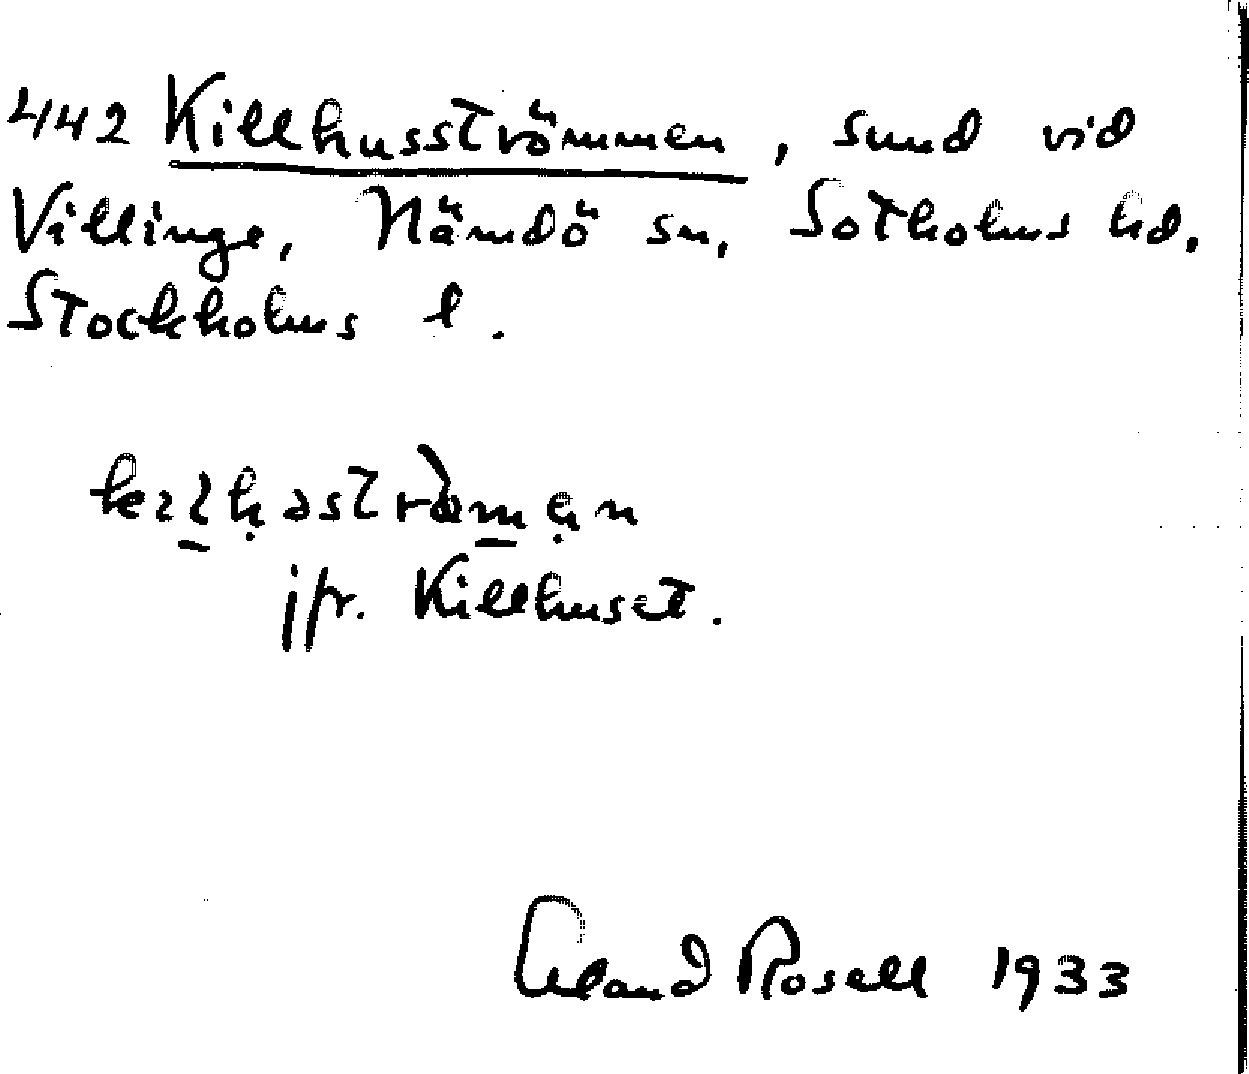 442 Killhusströmmen, sund vid
Villinge, Nämdö sn, Sotholms hd.
Stockholms l.
jfr. Killhuset.
Erland Rosell 1933